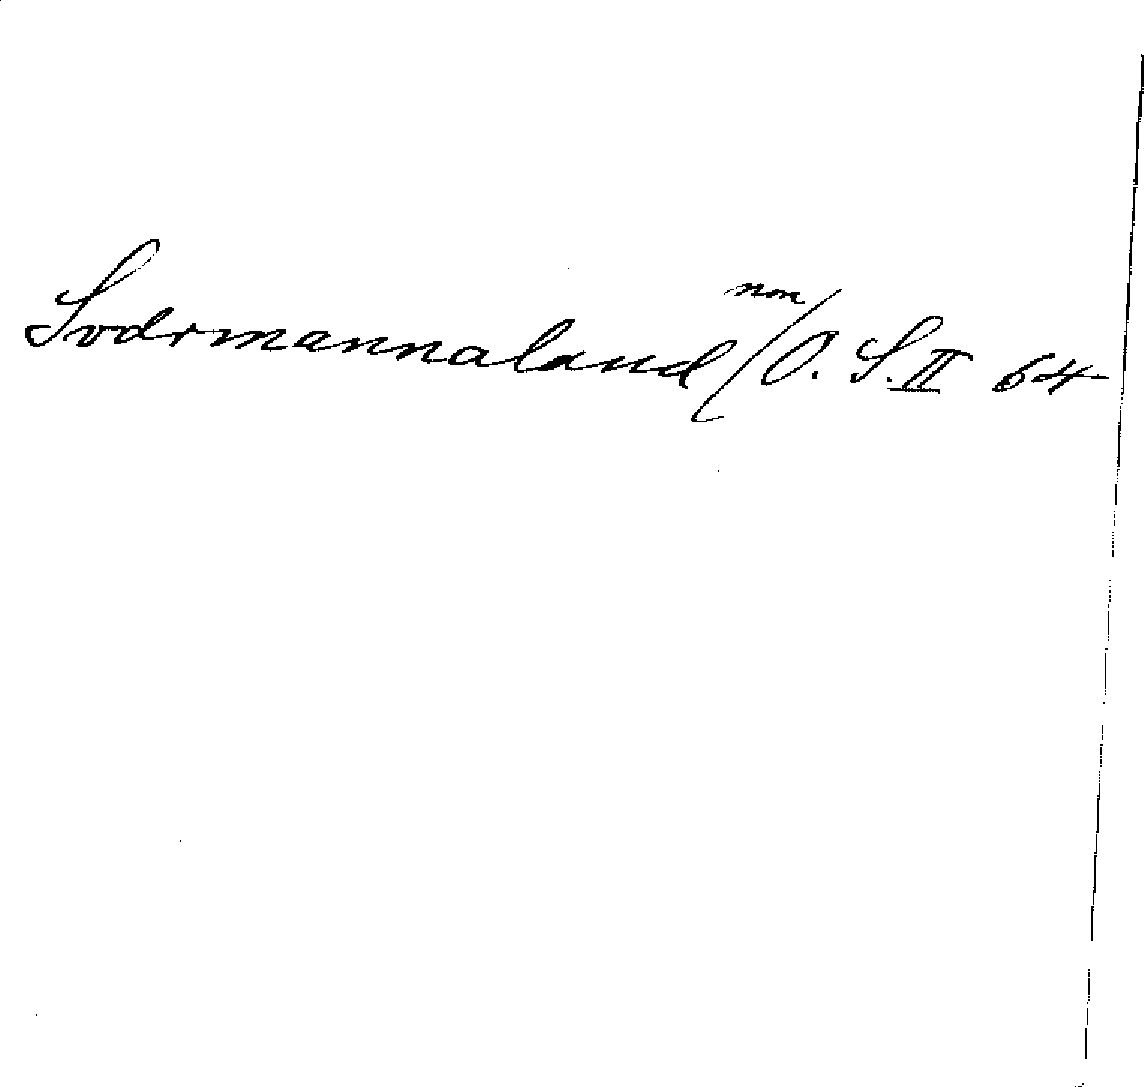 Sodrmannaland / O. S. II 64